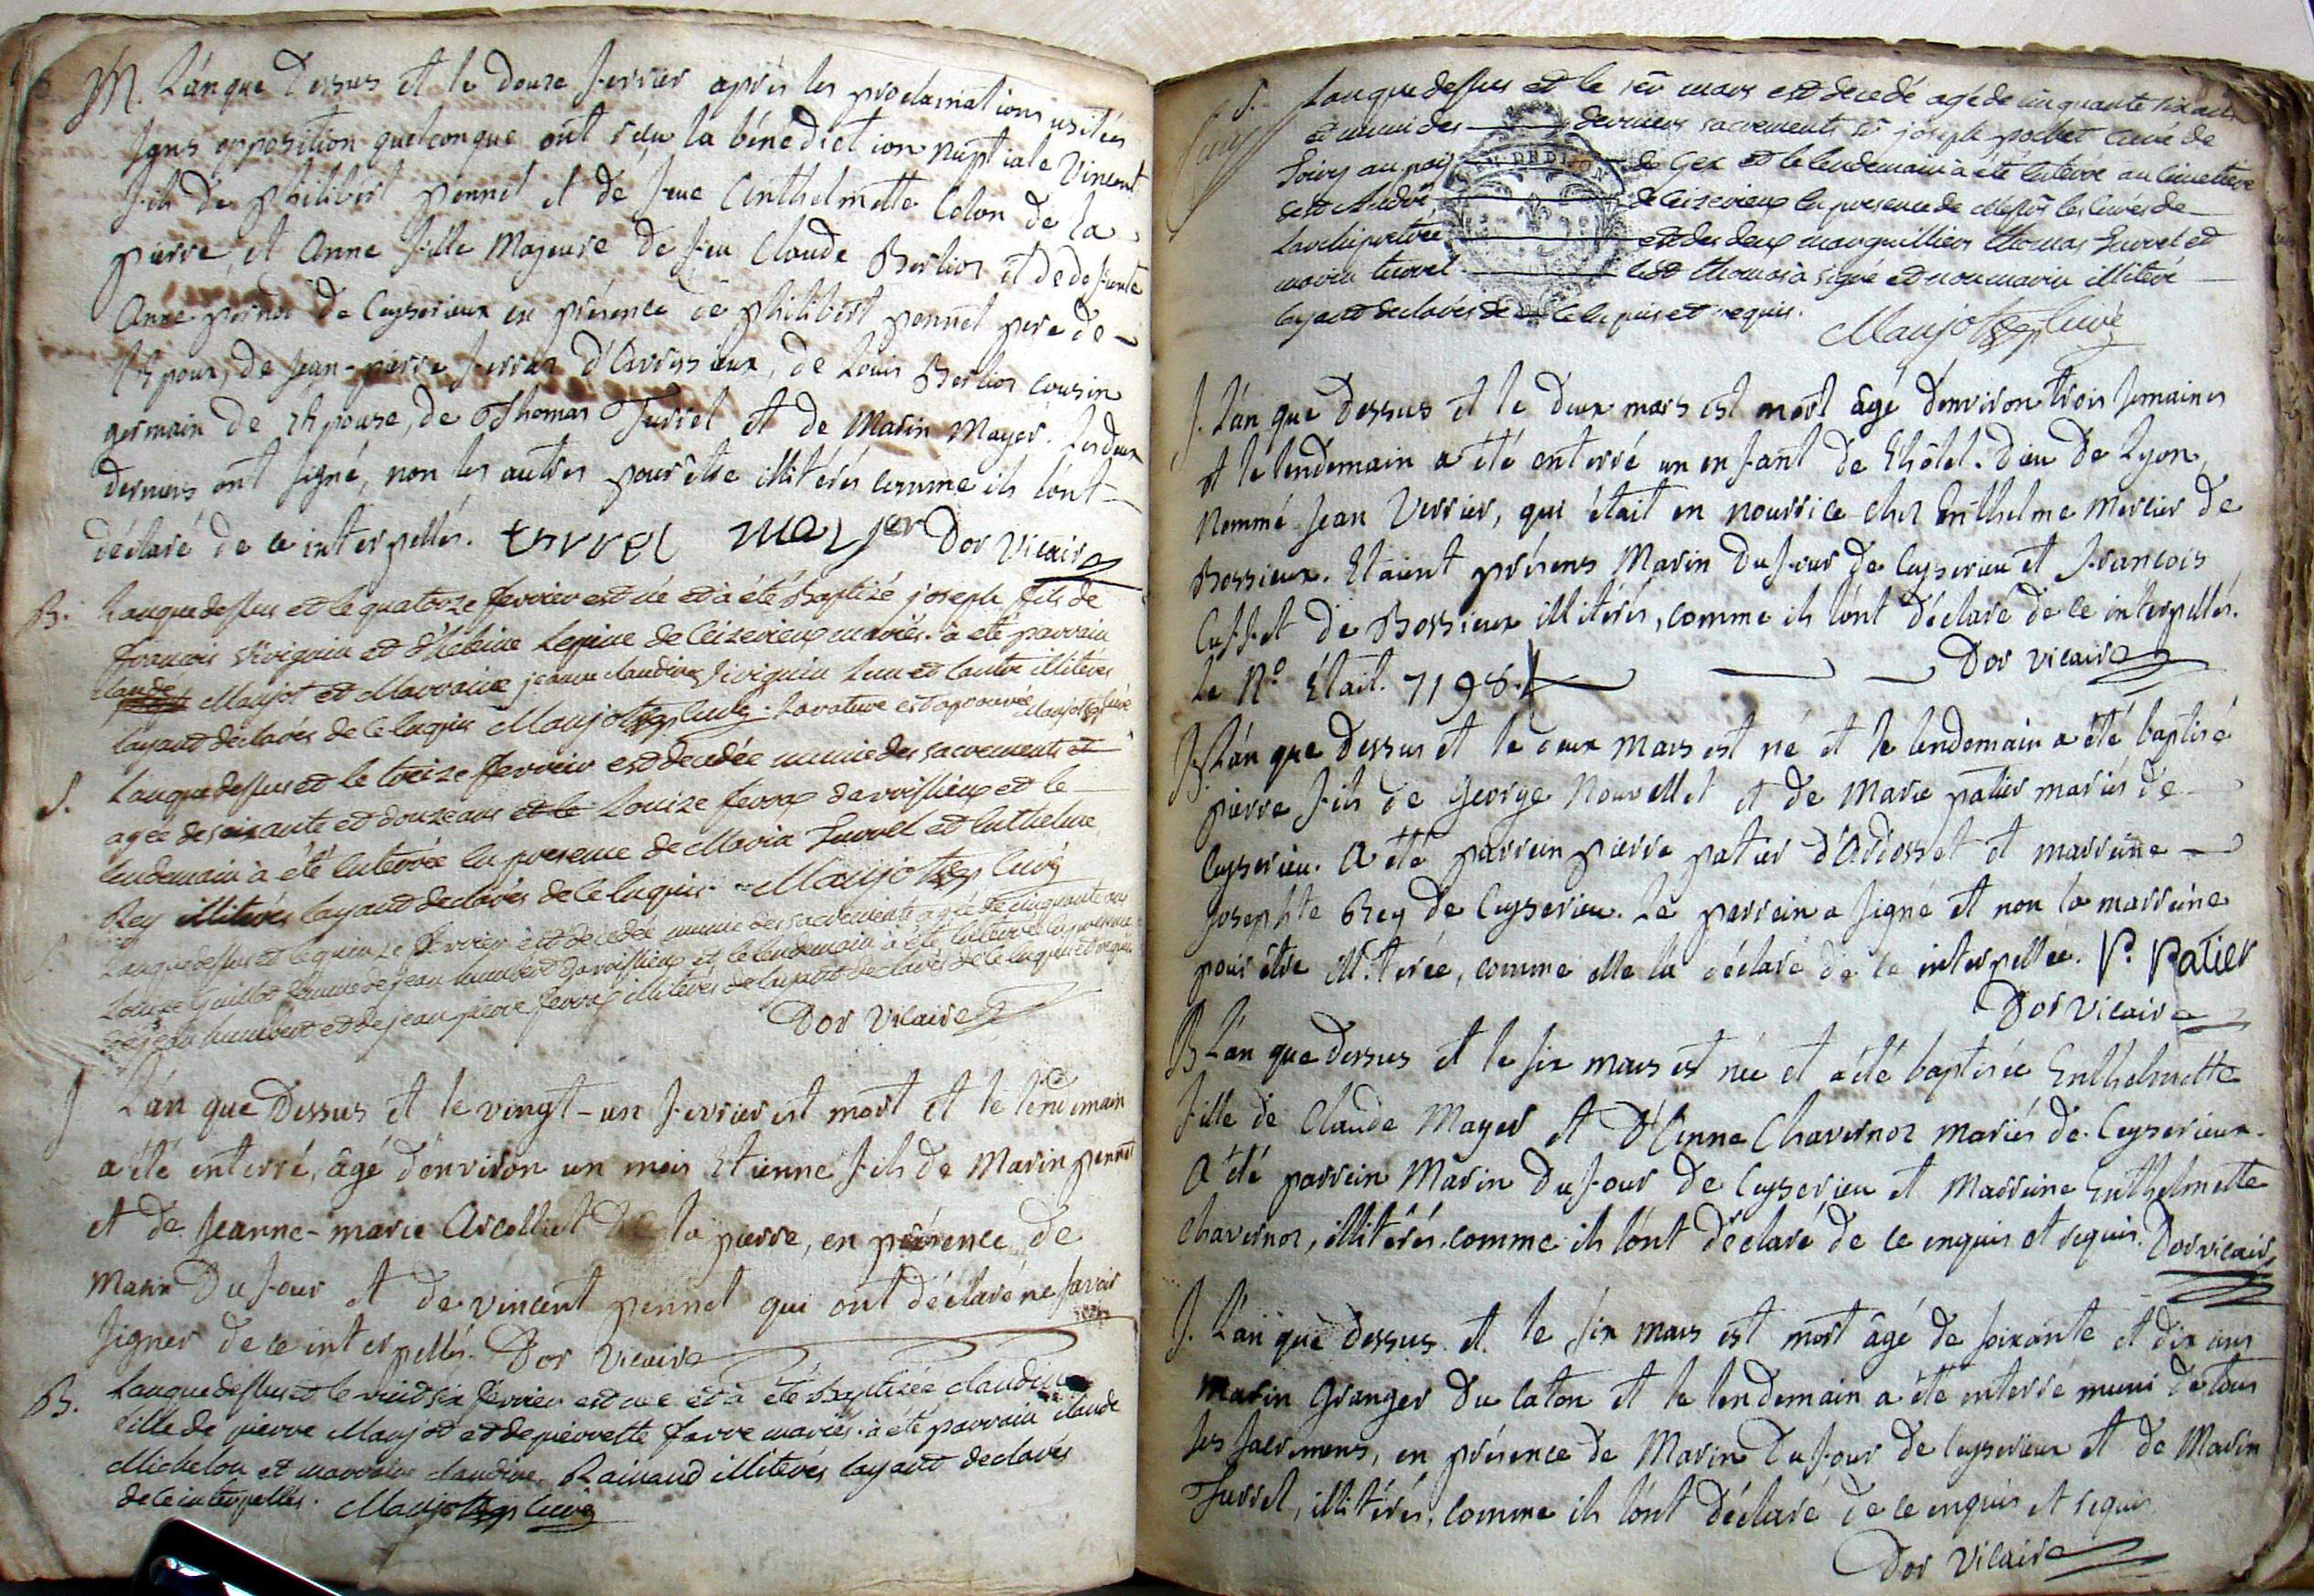 M. L'an que Dessus et le douze fevrier aprés les proclamations usitées
sans opposition quelconque ont reçu la bénédiction nuptiale Vincent
fils de philibert pennet et de feue Enthelmette Colon de la
pierre, et Anne fille Majeure de feu Claude Berlioz et de defunte
Anne pernoz de Ceyserieux en présence de philibert pennet pere de
l'Epoux, de Jean-pierre ferraz d'Avrissieux, de Louis Berlioz cousin
germain de l'Epouse, de Thomas Turrel et de Marin Mayer. Les deux
derniers ont signé, non les autres pour être illitérés comme ils l'ont
déclaré de ce interpellés. turrel mayer Dor Vicaire
B. L'an que dessus et le quatorze fevrier est né et à été Baptizé joseph fils de
françois Vivignin et d'hélaine Lepine de Ceizerieux mariés. à été parrain
Claude Maujot et Marraine jeanne claudine Vivignin l'un et l'autre illiterés
layant declarés de ce enquis Maujot curé. La rature est aprouvée Maujot curé
S. L'an que dessus et le treize fevrier est decedée munie des sacrements et
agée de soixante et douze ans et le Louize ferra d'avrissieux et le
lendemain à été enterrée en presence de Marin Turrel et Enthelme
Rey illiterés layant declarés de ce enquis. Maujot curé
S. L'an que dessus et le quinze fevrier est decedée munie des sacrements agée de cinquante ans
Louize Guillot femme de jean humbert d'avrissieux et le lendemain à été enterrée en presence
de jean humbert et de jean pierre ferra illiterés de layant declarés de ce enquis et requis
Dor Vicaire
S L'an que Dessus et le vingt-un fevrier est mort et le lendemain
a été enterré, âgé d'environ un mois Etienne fils de Marin pennet
et de Jeanne-marie Arcolliet de la pierre, en présence de
Marin Dufour et de vincent pennet qui ont déclaré ne savoir
signer de ce interpellés. Dor Vicaire
B. L'an que dessus et le vint six fevrier est née et à été Baptizée claudine
fille de pierre Maujot et de pierrette favre mariés. à été parrain claude
Michelon et marraine claudine Rainaud illiterés layant declarés
de ce interpellés. Maujot curé
S. L'an que dessus et le 1er mars est decedé agé de cinquante six ans
et muni des derniers sacrements Sr joseph pochet curé de
Soivy au païs de Gex et le lendemain à été enterré au cimetière
de St André de Ceizerieux en presence de Messrs les curés de
Larchipretré et des deux marguilliers thomas Turrel et
marin turrel ledt thomas a signé et non marin illiteré
layant declarés de ce enquis et requis.
Maujot curé
S. L'an que Dessus et le deux mars est mort âgé d'environ trois semaines
et le lendemain a été enterré un enfant de l'hôtel-Dieu de Lyon,
Nommé Jean Verrier, qui était en nourrice chez Enthelme Mercier de
Bossieux. Etaient présens Marin Dufour de Ceyserieu et françois
Cusset de Bossieux illitérés, comme ils l'ont déclaré de ce interpellés.
Le No. Etait. 7198. Dor Vicaire
B. L'an que Dessus et le deux mars est né et le lendemain a été baptisé
pierre fils de George Nouvellet et de Marie patier mariés de
Ceyserieu. A été parrein pierre patier d'Ardosset et marreine
Josephte Rey de Ceyserieu. Le parrein a signé et non la marreine
pour être illitérée, comme elle l'a déclaré de ce interpellée. P. Patier
Dor Vicaire
B L'an que Dessus et le six mars est née et a été baptisée Enthelmette
fille de Claude Mayer et D'Anne Chavernoz mariés de Ceyserieux.
A été parrein Marin Dufour de Ceyserieu et Marreine Enthelmette
Chavernoz, illitérés comme ils l'ont déclaré de ce enquis et requis. Dor vicaire
S. L'an que Dessus et le six mars est mort âgé de soixante et dix ans
Marin Granger Du Caton et le lendemain a été enterré muni de tous
ses sacremens, en présence de Marin Dufour de Ceyserieux et de Marin
Turrel, illitérés, comme ils l'ont déclaré de ce enquis et requis
Dor Vicaire